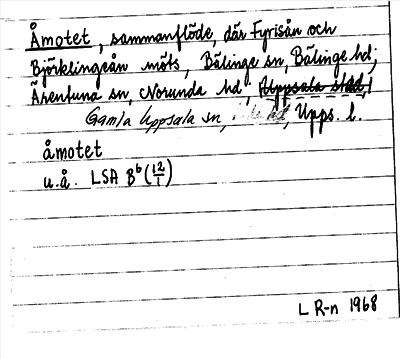 Åmotet, sammanflöde, där Fyrisån och
Björklingeån möts, Bälinge sn, Bälinge hd;
Ärentuna sn, Norunda hd; Uppsala stad,
Gamla Uppsala sn, hd, Upps. l.
åmotet
u.å. LSA B6 (12/1)
L R-n 1968